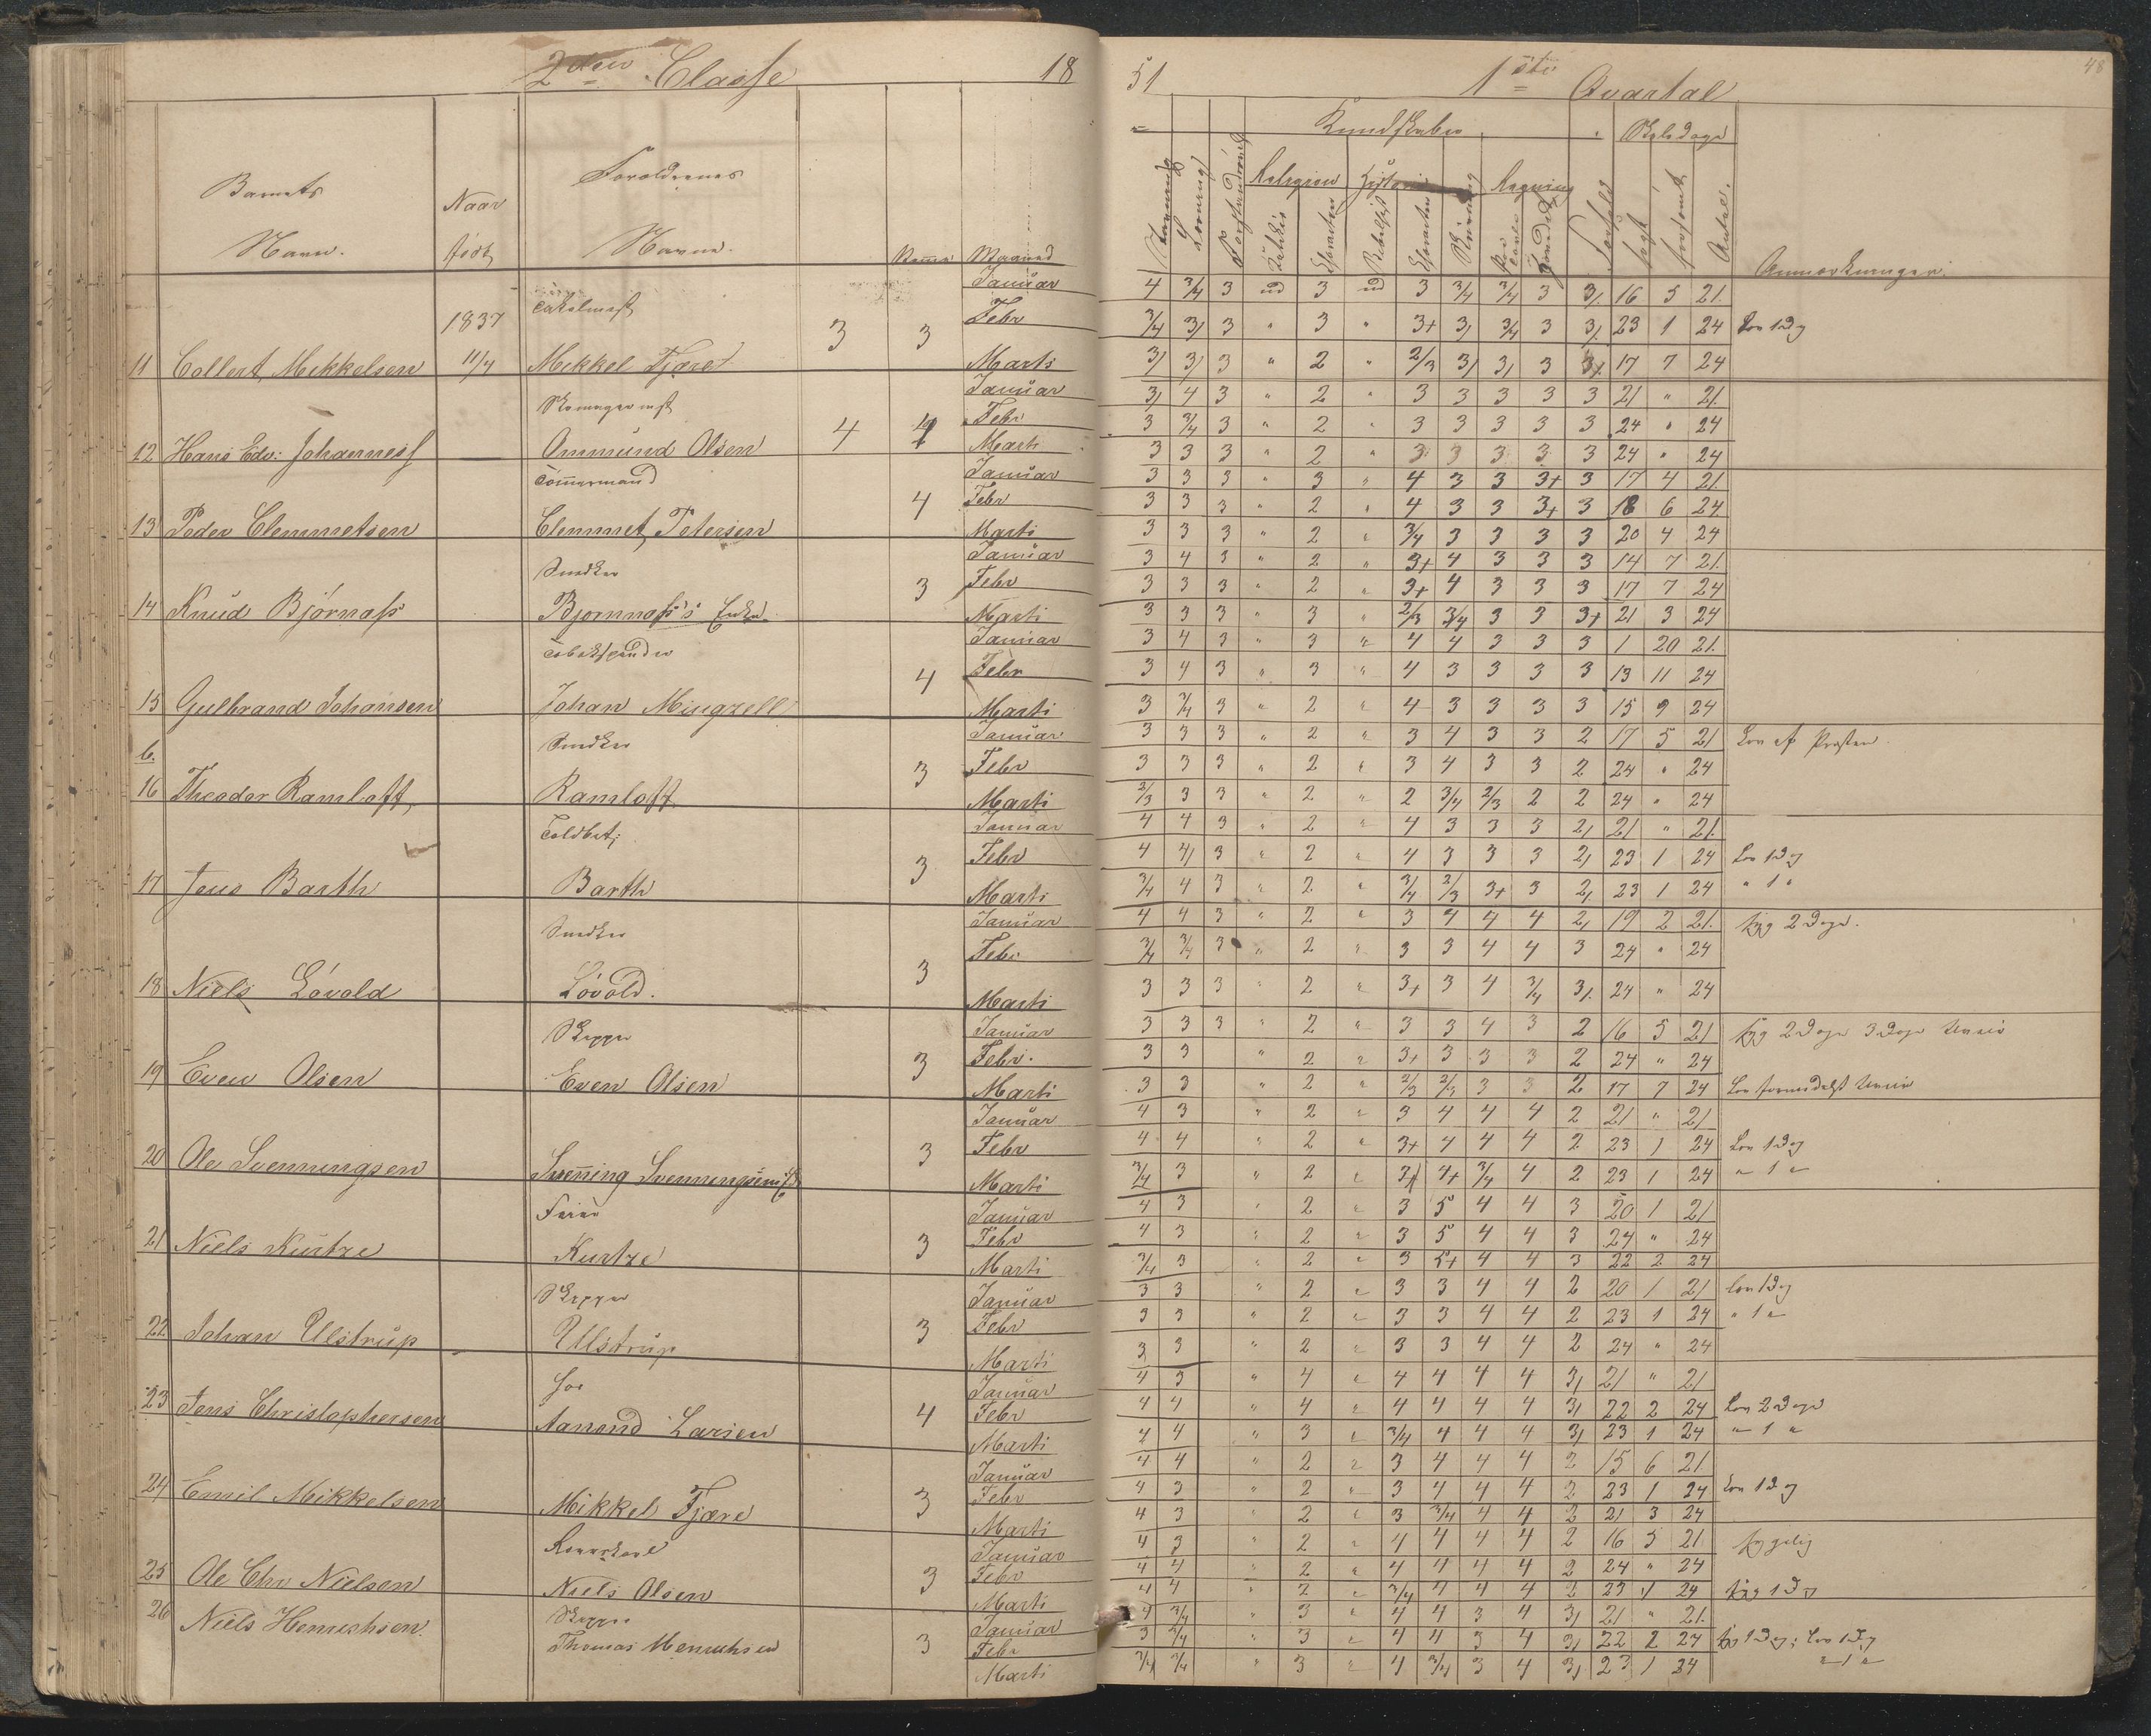 2den Classe 18
51 1ste Qvartal 48
Kundskaber Skoledage
Barnets Naar Forældrenes
Navn. født Navne. Maaned
Religion Historie Regning
Forstandsevne Udenad Tavlen Hovedet søgt forsømt Antal. Anmærkninger.
Januar 4 3/4 3 ud 3 ud 3 3/4 3/4 3 3/. 16 5 21.
1837 3 3 Febr 3/4 3/ 3 " 3 " 3+ 3/ 3/4 3 3/. 23 1 24 Lov 1 Dag
11 Collert Mekkelsen 11/4 Mekkel Tjære Marts 3/ 3/ 3 " 2 " 2/3 3/ 3/ 3 3/. 17 7 24
Januar 3/ 4 3 " 2 " 3 3 3 3 3 21 " 21.
4 4 Febr 3 3/4 3 " 2 " 3 3 3 3 3 24 " 24
12 Hans Edv: Johanness Ommund Olsen Marts 3 3 3 " 2 " 3 3 3 3 3 24 " 24
Tømmermand Januar 3 3 3 " 3 " 4 3 3 3+ 3 17 4 21.
4 Febr 3 3 3 " 2 " 4 3 3 3+ 3 18 6 24
13 Peder Clemmetsen Clemmet Petersen Marti 3 3 3 " 2 " 3/4 3 3 3 3 20 4 24
Snedker Januar 3 4 3 " 2 " 3+ 4 3 3 3 14 7 21.
3 Febr 3 3 3 " 2 " 3+ 4 3 3 3 17 7 24
14 Knud Bjørnass Bjørnass's Enke. Marti 3 3 3 " 3 " 2/3 3/4 3 3 3+ 21 3 24
Januar 3 4 3 " 3 " 4 4 3 3 3 1 20 21.
4 Febr 3 4 3 " 3 " 4 3 3 3 3 13 11 24
15 Gulbrand Johansen Johan Mingzell Marti 3 3/4 3 " 2 " 4 3 3 3 3 15 9 24
b. Snedker Januar 3 3 3 " 2 " 3 4 3 3 2 17 5 21 Lov af Præsten
3 Febr 3 3 3 " 2 " 3 4 3 3 2 24 " 24
16 Theodor Ramloff, Ramloff Marti 2/3 3 3 " 2 " 2 3/4 2/3 2 2 24 " 24
Toldbet; Januar 4 4 3 " 2 " 4 3 3 3 2/ 21 " 21.
3 Febr 4 4/ 3 " 2 " 4 3 3 3 2/ 23 1 24 Lov 1 Dag
17 Jens Barth Barth Marti 3/4 4 3 " 2 " 3/4 2/3 3+ 3 2/ 23 1 24 " 1 "
Snedker Januar 4 4 3 " 2 " 3 4 4 4 2/ 19 2 21. syg 2 Dage.
3 Febr 3/4 3/4 3 " 2 " 3 3 4 4 3 24 " 24
18 Niels Løvold Løvold. Marti 3 3 3 " 2 " 3+ 3 4 3/4 3/. 24 " 24
Skipper Januar 3 3 3 " 2 " 3 3 4 3 2 16 5 21 syg 2 Dage 3 Dage
3 Febr. 3 3 " 2 " 3+ 3 3 3 2 24 " 24
19 Even Olsen Even Olsen Marti 3 3 " 2 " 2/3 2/3 3 3 2 17 7 24 Lov formedelst
Januar 4 3 " 2 " 3 4 4 4 2 21 " 21
3 Febr 4 4 " 2 " 3+ 4 4 4 2 23 1 24 Lov 1 Dag
20 Ole Svenningsen Svenning Svenningsen Marti 3/4 3 " 2 " 3/ 4+ 3/4 4 2 23 1 24 " 1 "
Januar 4 3 " 2 " 3 5 4 4 3 20 1 21
3 Febr 4 3 " 2 " 3 5 4 4 3 24 " 24
21 Niels Kurtze Kurtze Marti 3/4 3 " 2 " 3 5+ 4 4 3 22 2 24
Skipper Januar 3 3 " 2 " 3 3 4 4 2 20 1 21 Lov 1 Dag
3 Febr 3 3 " 2 " 3 3 4 4 2 23 1 24 " 1 "
22. Johan Ulstrup Ulstrup Marti 3 3 " 2 " 3 3 4 4 2 24 " 24
hos Januar 4 3 " 4 " 4 4 4 4 3/ 21 " 21
4 Febr 4 4 " 4 " 4 4 4 4 3/ 22 2 24 Lov 2 Dage
23 Jens Christophersen Aanond Larsen Marti 4 4 " 3 " 3/4 4 4 4 3/ 23 1 24 " 1 "
Januar 4 4 " 2 " 3 4 4 4 2 15 6 21.
3 Febr 4 3 " 2 " 3 4 4 4 2 23 1 24 Lov 1 Dag
24 Emil Mikkelsen Mikkel Tjære Marti 4 3 " 2 " 3 3/4 4 4 2 21 3 24
Januar 4 3 " 2 " 4 4 4 4 2 16 5 21 sygelig
3 Febr 4 4 " 2 " 4 4 4 4 2 24 " 24
25 Ole Chr Nielsen Niels Olsen Marti 4 4 " 2 " 3/4 4 4 4 2 23 1 24 syg 1 Dag
Skipper Januar 4 3/4 " 3 " 4 4 3 4 3/ 21 " 21.
26 Niels Henrichsen. Thomas Henrichsen 3 Febr 3 3/4 " 3 " 4 4 3 4 3/ 22 2 24 syg 1 Dag; Lov 1 Dag
Marti 3/4 3/4 " 3 " 4 3/4 3 4 3/ 23 1 24 " 1 "